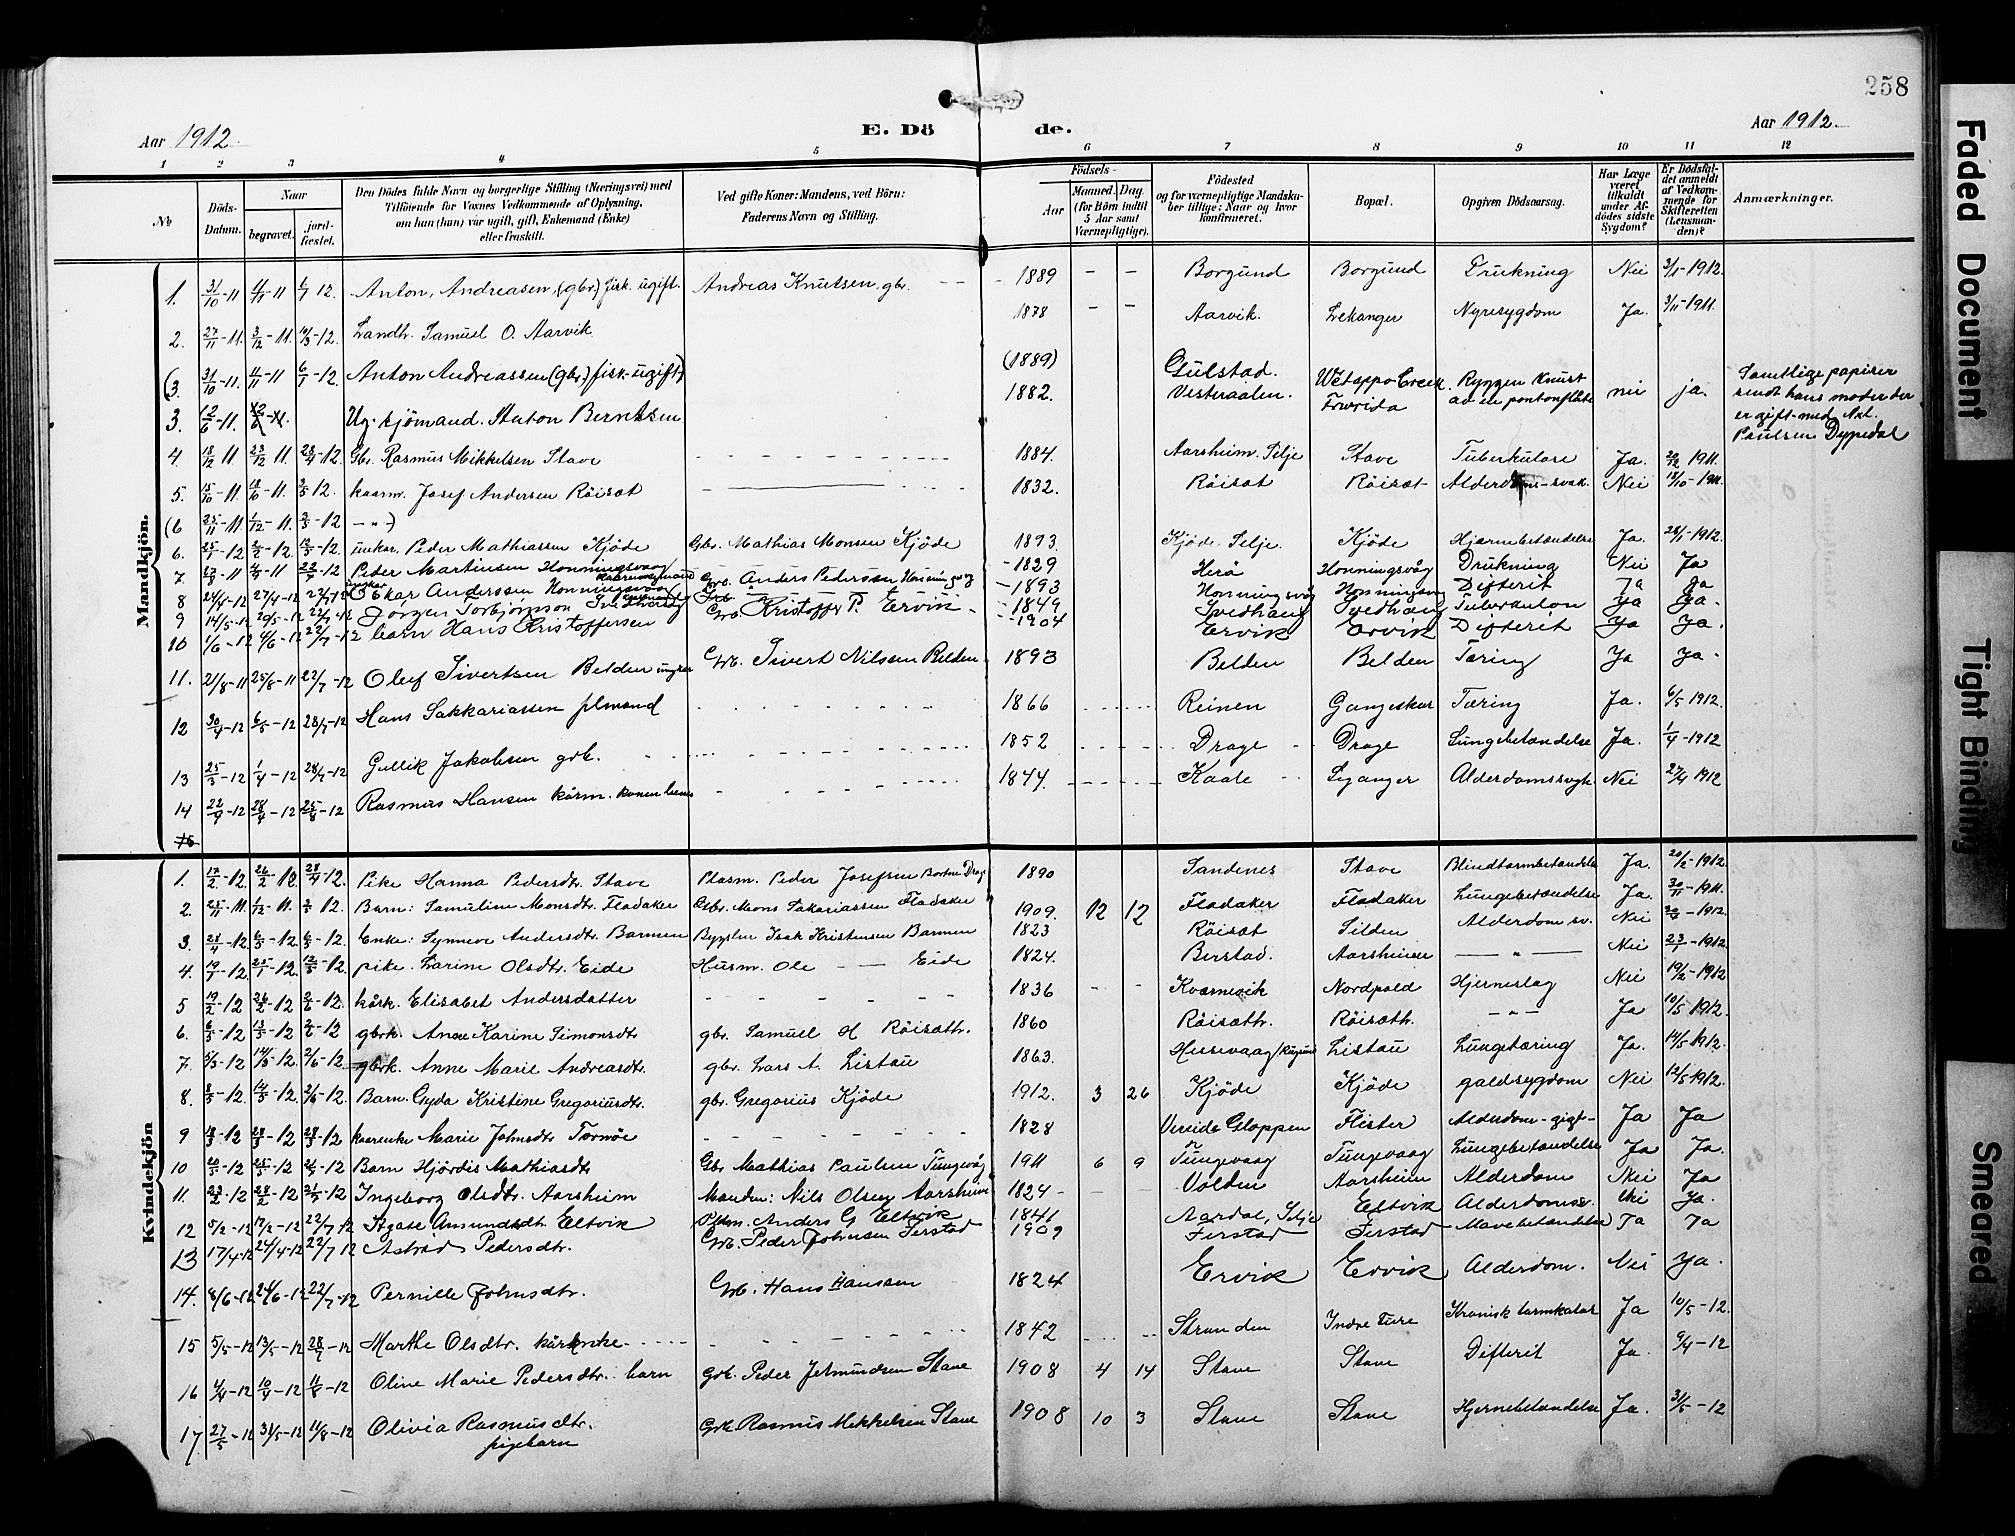 258
Aar 1912.
E. Dö de.
Aar 1912.
1 2 3 4 5 6 7 8 9 10 11 12
№ Döds-Datum. Naar begravet. jordfæstet. Den Dödes fulde Navn og borgerlige Stilling (Næringsvei) med Tilföiende for Voxnes Vedkommende af Oplysning, om han (hun) var ugift, gift, Enkemand (Enke) eller fraskilt. Ved gifte Koner: Mandens, ved Börn: Faderens Navn og Stilling. Födsels- Aar Maaned. Dag. (for Börn indtil 5 Aar samt Værnepligtige). Födested og for værnepligtige Mandskaber tillige: Naar og hvor konfirmeret. Bopæl. Opgiven Dödsaarsag. Har Læge været tilkaldt under Afdödes sidste Sygdom? Er Dödsfaldet anmeldt af Vedkommende for Skifteretten (Lensmanden)? Anmærkninger.
Mandkjön.
1. 31/10-11 11/11-11 6/1 12. Anton Andreasen (gbr.) fisk. ugift. Andreas Knutsen, gbr. 1889 Borgund Borgund Drukning Nei 3/1-1912.
2. 27/11-11. 3/12-11. 10/3-12. Landh. Samuel O. Aarvik 1878 Aarvik. Lekanger Nyresygdom Ja. 3/11-1911.
(3. 31/10-11. 11/11-11 6/1-12. Anton Andreassen (gbr.) fisk. ugift) (1889)
3. 12/6-11. Ug. sjömand. Anton Berntsen 1882. Gulstad. Vesteraalen. Wetappo Creek Frorida Ryggen knust av en pontonflåte nei ja. Samtlige papirer sendt hans moder der er gift med Nil. Paulsen Dypedal
4. 18/12 11 23/12 11. 28/4-12. Gbr. Rasmus Mikkelsen Stave 1884. Aarsheim. Selje Stave Tuberkulose Ja. 20/12 1911.
5. 15/10-11 18/10-11. 2/5 12. kaarm. Josef Andersen Röisæt 1832. Röisæt Röisæt Alderdoms-svak. Nei 18/10-1911.
(6 25/11-11. 1/12-11. 2/5-12 -"-)
6. 25/1-12 2/2-12. 12/5-12. unkar. Peder Mathiassen Kjöde Gbr. Mathias Monsen Kjöde 1893. Kjöde. Selje. Kjöde Hjærnebetændelse Ja. 28/1-1912.
7 Peder Martinsen Honningsvaag kaarmand Gbr. Anders Pedersen Honningsvåg 1829 Herö Honningsvåg Drukning Nei Ja
8 24/4-12 27/4-12 22/7-12 Oskar Anderssen Honningsvaag 1893 Honningsvåg Honningsvåg Difterit Ja Ja
9 14/5-12 20/5-12 22/7-12 Jörgen Torbjörnson Svedhaug 1849 Svedhaug Svedhaug Tuberkulose Ja Ja.
10 1/6-12 4/6-12 22/7-12 barn Hans Kristoffersen Grb. Kristoffer P. Ervik 1904 Ervik Ervik Difterit Ja Ja.
11. 21/8-11 25/8-11 22/7-12 Oluf Sivertsen Belden ungkar Grb. Sivert Nilssen Belden 1893 Belden Belden Tæring Ja Ja.
12 30/4-12 6/5-12 28/7-12 Hans Sakkariassen plmand 1866 Reinen Gangeskar Tæring Ja. 6/5 1912.
13 25/3-12 1/4-12 28/7-12 Gullik Jakobsen grb. 1852 Drage Drage Lungebetændelse Ja. 1/4-1912
14 22/4-12 28/4-12 25/8-12 Rasmus Hansen kårm. konen lever 1844. Kaale Leganger Alderdomssvgh Nei 27/4 1912
15
Kvindekjön
1. 17/2-12. 26/2-12. 28/4-12. Pike Hanna Pedersdtr. Stave Plasm. Peder Josefsen Bortne Drag 1890 Sandenes Stave Blindtarmbetændelse Ja. 20/2-1912.
2. 25/11-11. 1/12-11. 2/5 12. Barn: Samuline Monsdtr. Flodaker Gbr. Mons Sakariassen Flodaker 1909. 12 12 Flodaker Flodaker Lungebetændelse Ja. 30/11-1911.
3. 28/4-12. 6/5-12. 6/5-12. Enke: Synneve Andersdtr. Barmen Bygslm. Isak Kristensen Barmen 1823 Röisæt Silden Alderdom sv. Nei
4. 19/1-12. 25/1-12. 12/5-12. pike. Larine Olsdtr. Eide Husm. Ole — Eide 1824. Berstad. Aarsheim — " — Nei 23/1-1912.
5 19/2-12 26/2-12 2/6-12 kårk. Elisabet Andersdatter 1836 Kvernevik Nordpold Hjerneslag Nei 19/2-1912
6. 6/5-12 13/5-12 2/6-12 gbrk. Anne Karine Simonsdtr gbr. Samuel H Röisæth. 1860 Röisæth. Röisæth. -"- Ja 10/5-1912.
7. 5/3-12 14/3-12. 2/6-12. gbrk. Anne Marie Andreasdtr. gbr. Lars A. Listau 1863. Husevaag Listau Lungetæring Ja. 14/5-1912.
8. 8/5-12. 17/5-12. 2/6-12. Barn. Gyda Kristine Gregoriusdtr. gbr. Gregorius Kjöde 1912. 3 26 Kjöde Kjöde galdsygdom Nei 12/5-1912.
9 18/3-12 28/3-12 28/3-12 kaarenke Marie Johnsdtr Tornöe 1828 Vereide Gloppen Flister Alderdom-gigt- Ja Ja
10 20/5-12 25/5-12 2/6-12 Barn Hjördis Mathiasdtr Gbr Mathias Paulsen Tungevåg 1911 6 9 Tungevaag Tungevaag Lungebetændelse Ja Ja.
11. 23/2-12 28/2-12 21/5-12 Ingeborg Olsdtr. Aarsheim Manden: Nils Olsen Aarsheim 1824 Volden Aarsheim Alderdom Nei Ja
12 5/2-12 17/2-12 22/7 12 Agate Amundsdtr Eltvik Plm. Anders G Eltvik 1841 Aardal, Selje Eltvik Alderdomssv. Nei Ja.
13 17/4-12 24/4-12 22/7 12 Astrid Pedersdtr. Grb. Peder Johnsen Ferstad 1909 Ferstad Ferstad Mavebetændelse Ja Ja
14. 8/6-12 24/6-12 22/7-12 Pernille Johnsdtr. Grb. Hans Hanssen 1824 Ervik Ervik Alderdom. Nei Ja.
15 5/5-12 13/5-12 28/7-12 Marthe Olsdtr. kårenke 1842 Stranden Indre Fure Kronisk tarmkatar Ja 10/5-12.
16 4/4-12 10/4-12 11/8-12 Oline Marie Pedersdtr. barn Grb. Peder Jetmundsen Stave 1908 4 14 Stave Stave Difterit Ja. 9/4-12
17. 27/5-12 31/5-12 11/8-12 Olivia Rasmusdtr. pigebarn Grb Rasmus Mikkelsen Stave 1908 10 3 Stave Stave Hjernebetændelse Ja. 31/5-12
Faded Document
Tight Binding
Smeared